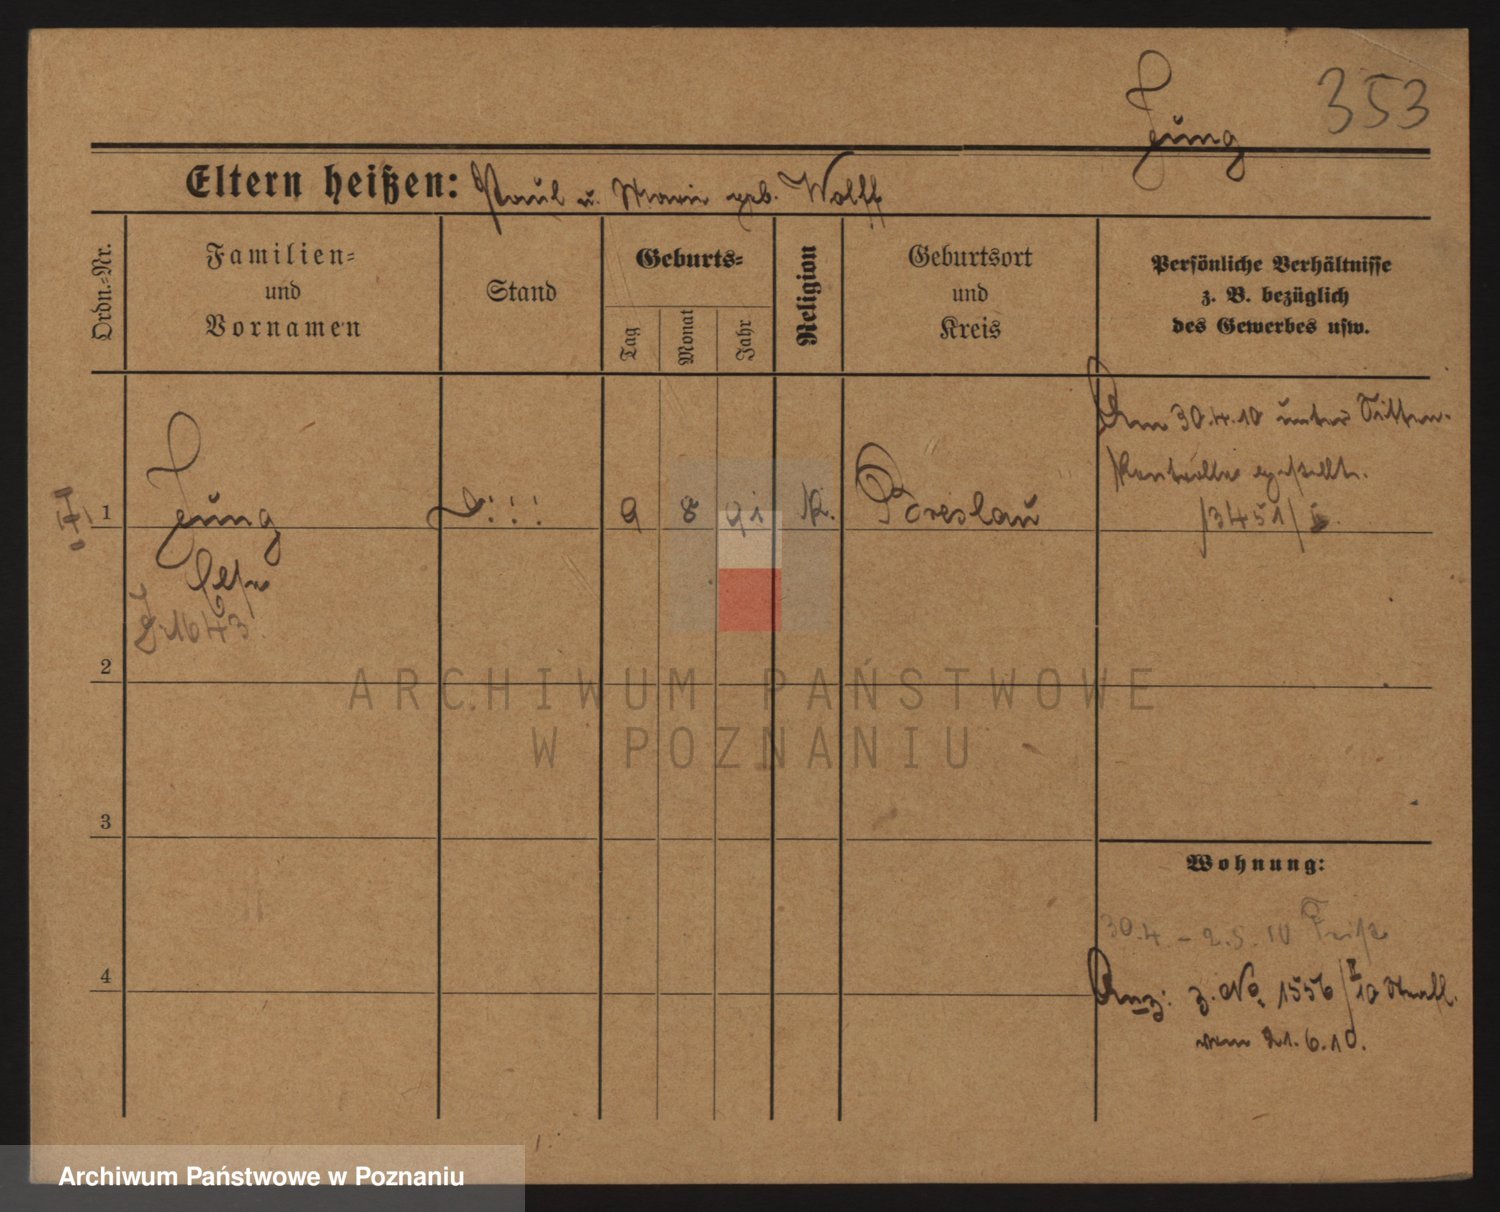 Jung 353
Eltern heißen: Paul u. Marie geb. Wolff
Ordn.-Nr.
Familien-
und
Vornamen
Stand
Geburts-
Tag
Monat
Jahr
Religion
Geburtsort
und
Kreis
Persönliche Verhältnisse
z. B. bezüglich
des Gewerbes usw.
Am 30.4.10 unter Sitten-
kontrolle gestellt.
/3451/
1 Jung 9 8 91 K. Breslau
Else
J. 1643.
2
3
4
Wohnung:
30.4 – 2.5.10
Anz: z. No. 1556/10
vom 21.6.10.
ARCHIWUM PAŃSTWOWE
W POZNANIU
Archiwum Państwowe w Poznaniu